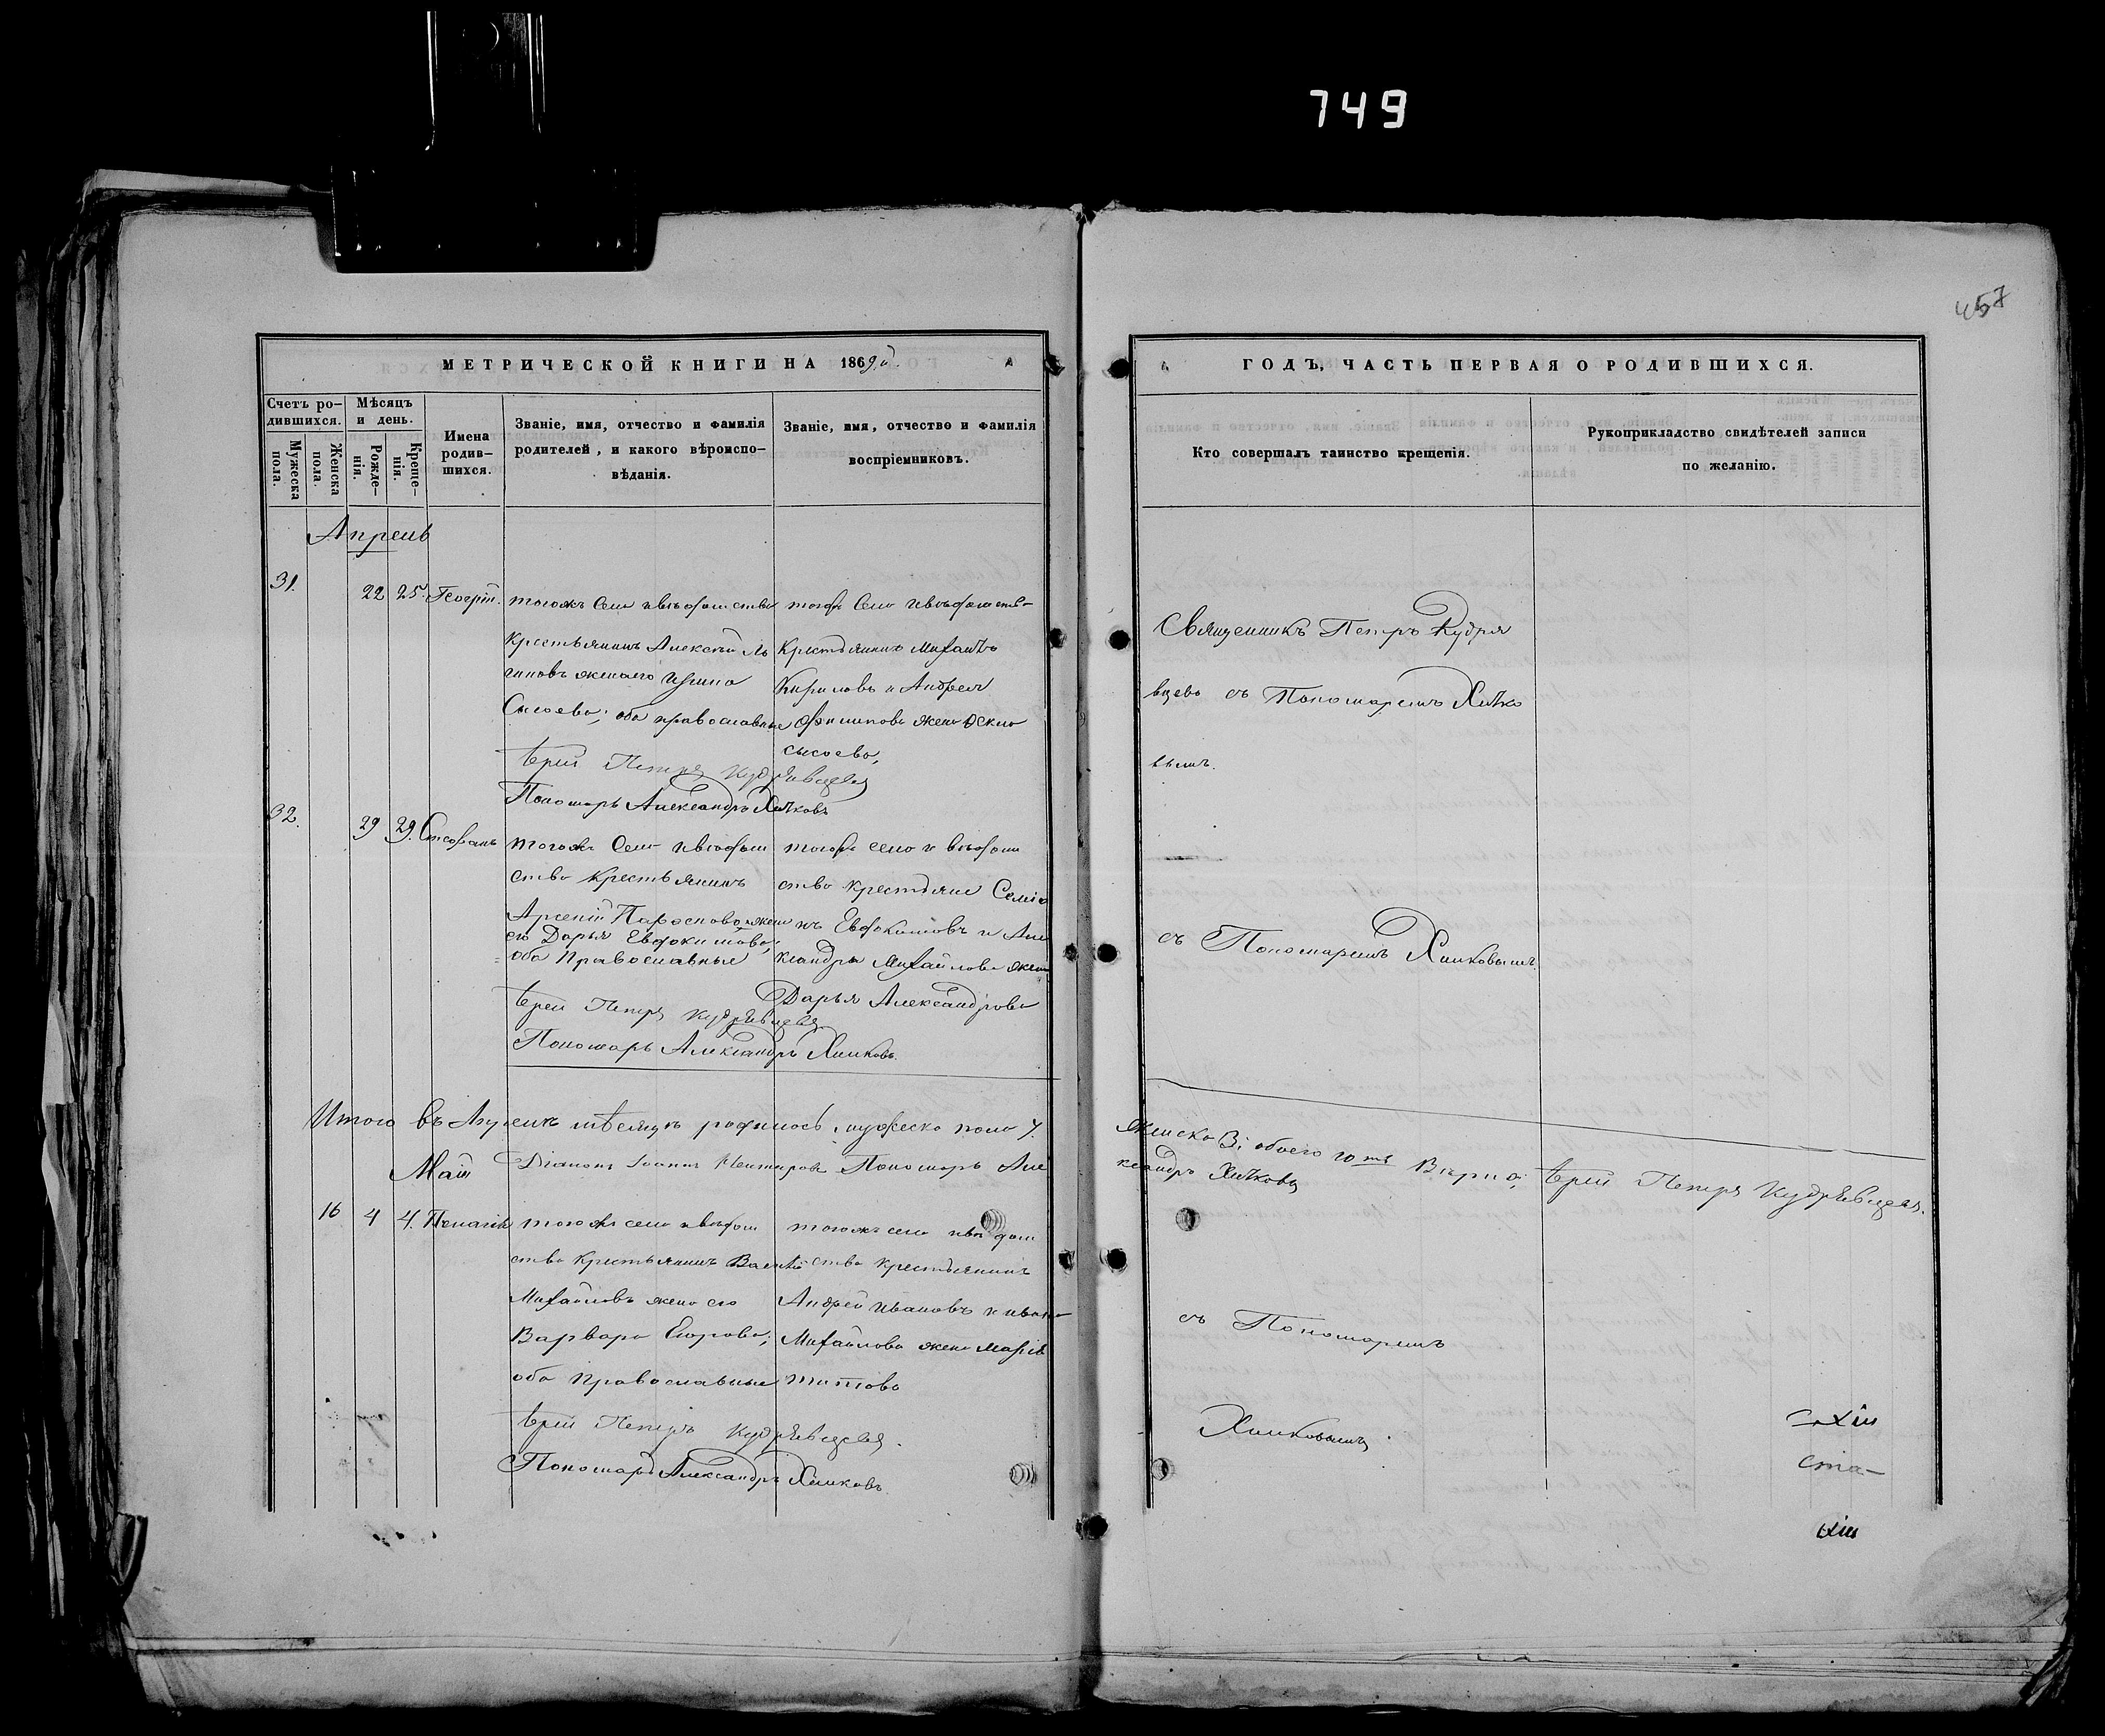 749
457
МЕТРИЧЕСКОЙ КНИГИ НА 1869й.
ГОДЪ, ЧАСТЬ ПЕРВАЯ О РОДИВШИХСЯ.
Счетъ ро-
дившихся.
Мужеска
пола.
Женска
пола.
Мѣсяцъ
и день.
Рожде-
нія.
Креще-
нія.
Имена
родив-
шихся.
Званіе, имя, отчество и фамилія
родителей, и какого вѣроиспо-
вѣданія.
Званіе, имя, отчество и фамилія
воспріемниковъ.
Кто совершалъ таинство крещенія.
Рукоприкладство свидѣтелей записи
по желанію.
Апрель
31. 22 25. Георгій.
тогожъ села
крестьянинъ Алексѣй Ло
гиновъ жена его Ирина
Сысоева; оба православные
Іерей Петръ Кудрявцевъ
Пономарь Александръ Хилковъ
крестьянинъ Михаилъ
Кириловъ и Андрея
Филипова жена
сысоева,
Священникъ Петръ Кудря
вцевъ съ Пономаремъ Хилко
вымъ.
32. 29 29. Стефанъ
тогожъ села и вѣдом
ства крестьянинъ
Арсеній жена
его Дарья Евдокимова;
оба Православные
Іерей Петръ Кудрявцевъ
Пономарь Александръ Хилковъ.
тогожъ села и вѣдом
ства крестьяне Семіо
нъ Евдокимовъ и Але
ксандра Михайлова жена
Дарья Александрова
съ Пономаремъ Хилковымъ.
Итого въ Апрелѣ мѣсяцѣ родилось мужеска пола 7.
женска 3; обоего 10ть Вѣрно; Іерей Петръ Кудрявцевъ.
Діаконъ Іоаннъ Пономарь Але
ксандръ Хилковъ
Май
16 4 4. Пелагія
тогожъ села и вѣдом
ства крестьянинъ Василій
Михайловъ жена его
Варвара Егорова;
оба Православные
Іерей Петръ Кудрявцевъ.
Пономарь Александръ Хилковъ.
тогожъ села и вѣдом
ства крестьянинъ
Андрей Ивановъ и Ивана
Михайлова жена Марія
Титова
съ Пономаремъ
Хилковымъ